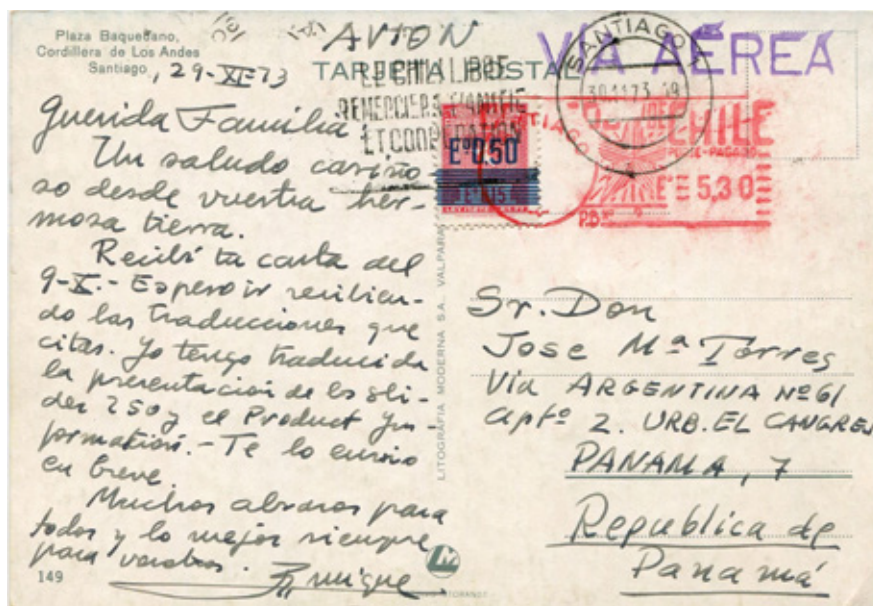 Plaza Baquedano,
Cordillera de Los Andes
Santiago
, 29-XI-73
AVION
VIA AEREA
TARJETA POSTAL
LE CHILI LIBRE
REMERCIE L'AMITIE
ET COOPERATION
SANTIAGO 1
30.11.73
CHILE
E° 5,30
E° 0.50
Querida Familia:
Un saludo cariño
so desde vuestra her-
mosa tierra.
Recibí tu carta del
9-X.- Espero ir recibien-
do las traducciones que
citas. Yo tengo traducida
la presentación de los sli-
des 250 y el Product In-
formation.- Te lo envio
en breve
Muchos abrazos para
todos y lo mejor siempre
para vosotros.
Enrique
149
LITOGRAFIA MODERNA S.A. VALPARA
LM
Sr. Don
Jose Mª Torres
Via ARGENTINA Nº 61
aptº 2. URB. EL CANGREJ
PANAMA, 7
Republica de
Panamá